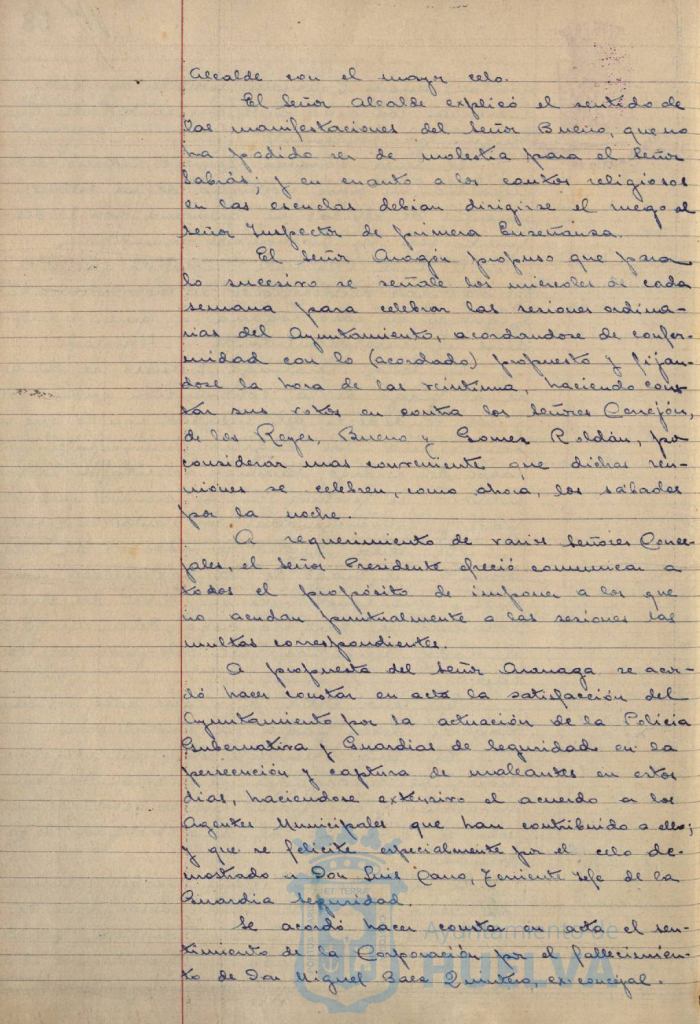 Alcalde con el mayor celo.
El Señor Alcalde explicó el sentido de
las manifestaciones del Señor Bueno, que no
ha podido ser de molestia para el Señor
Sabrás; y en cuanto a los cantos religiosos
en las escuelas debian dirigirse el ruego al
Señor Inspector de primera Enseñanza.
El Señor Aragón propuso que para
lo sucesivo se señale los miercoles de cada
semana para celebrar las sesiones ordina-
rias del Ayuntamiento, acordandose de confor-
midad con lo (acordado) propuesto y fijan-
dose la hora de las veintiuna, haciendo cons
tar sus votos en contra los Señores Cerrejón,
de los Reyes, Bueno y Gomez Roldán, por
considerar mas conveniente que dichas reu-
niones se celebren, como ahora, los sábados
por la noche.
A requerimiento de varios Señores Conce-
jales, el Señor Presidente ofreció comunicar a
todos el propósito de imponer a los que
no acudan puntualmente a las sesiones las
multas correspondientes.
A propuesta del Señor Aranaga se acor-
dó hacer constar en acta la satisfacción del
Ayuntamiento por la actuación de la Policia
Gubernativa y Guardias de Seguridad en la
persecución y captura de maleantes en estos
dias, haciendose extensivo el acuerdo a los
Agentes Municipales que han contribuido a ello;
y que se felicite especialmente por el celo de-
mostrado a Don Luis Cano, Teniente Jefe de la
Guardia Seguridad.
Se acordó hacer constar en acta el sen-
timiento de la Corporación por el fallecimien-
to de Don Miguel Baez Quintero, ex-concejal.
ET TERRÆ
Ayuntamiento de
HUELVA